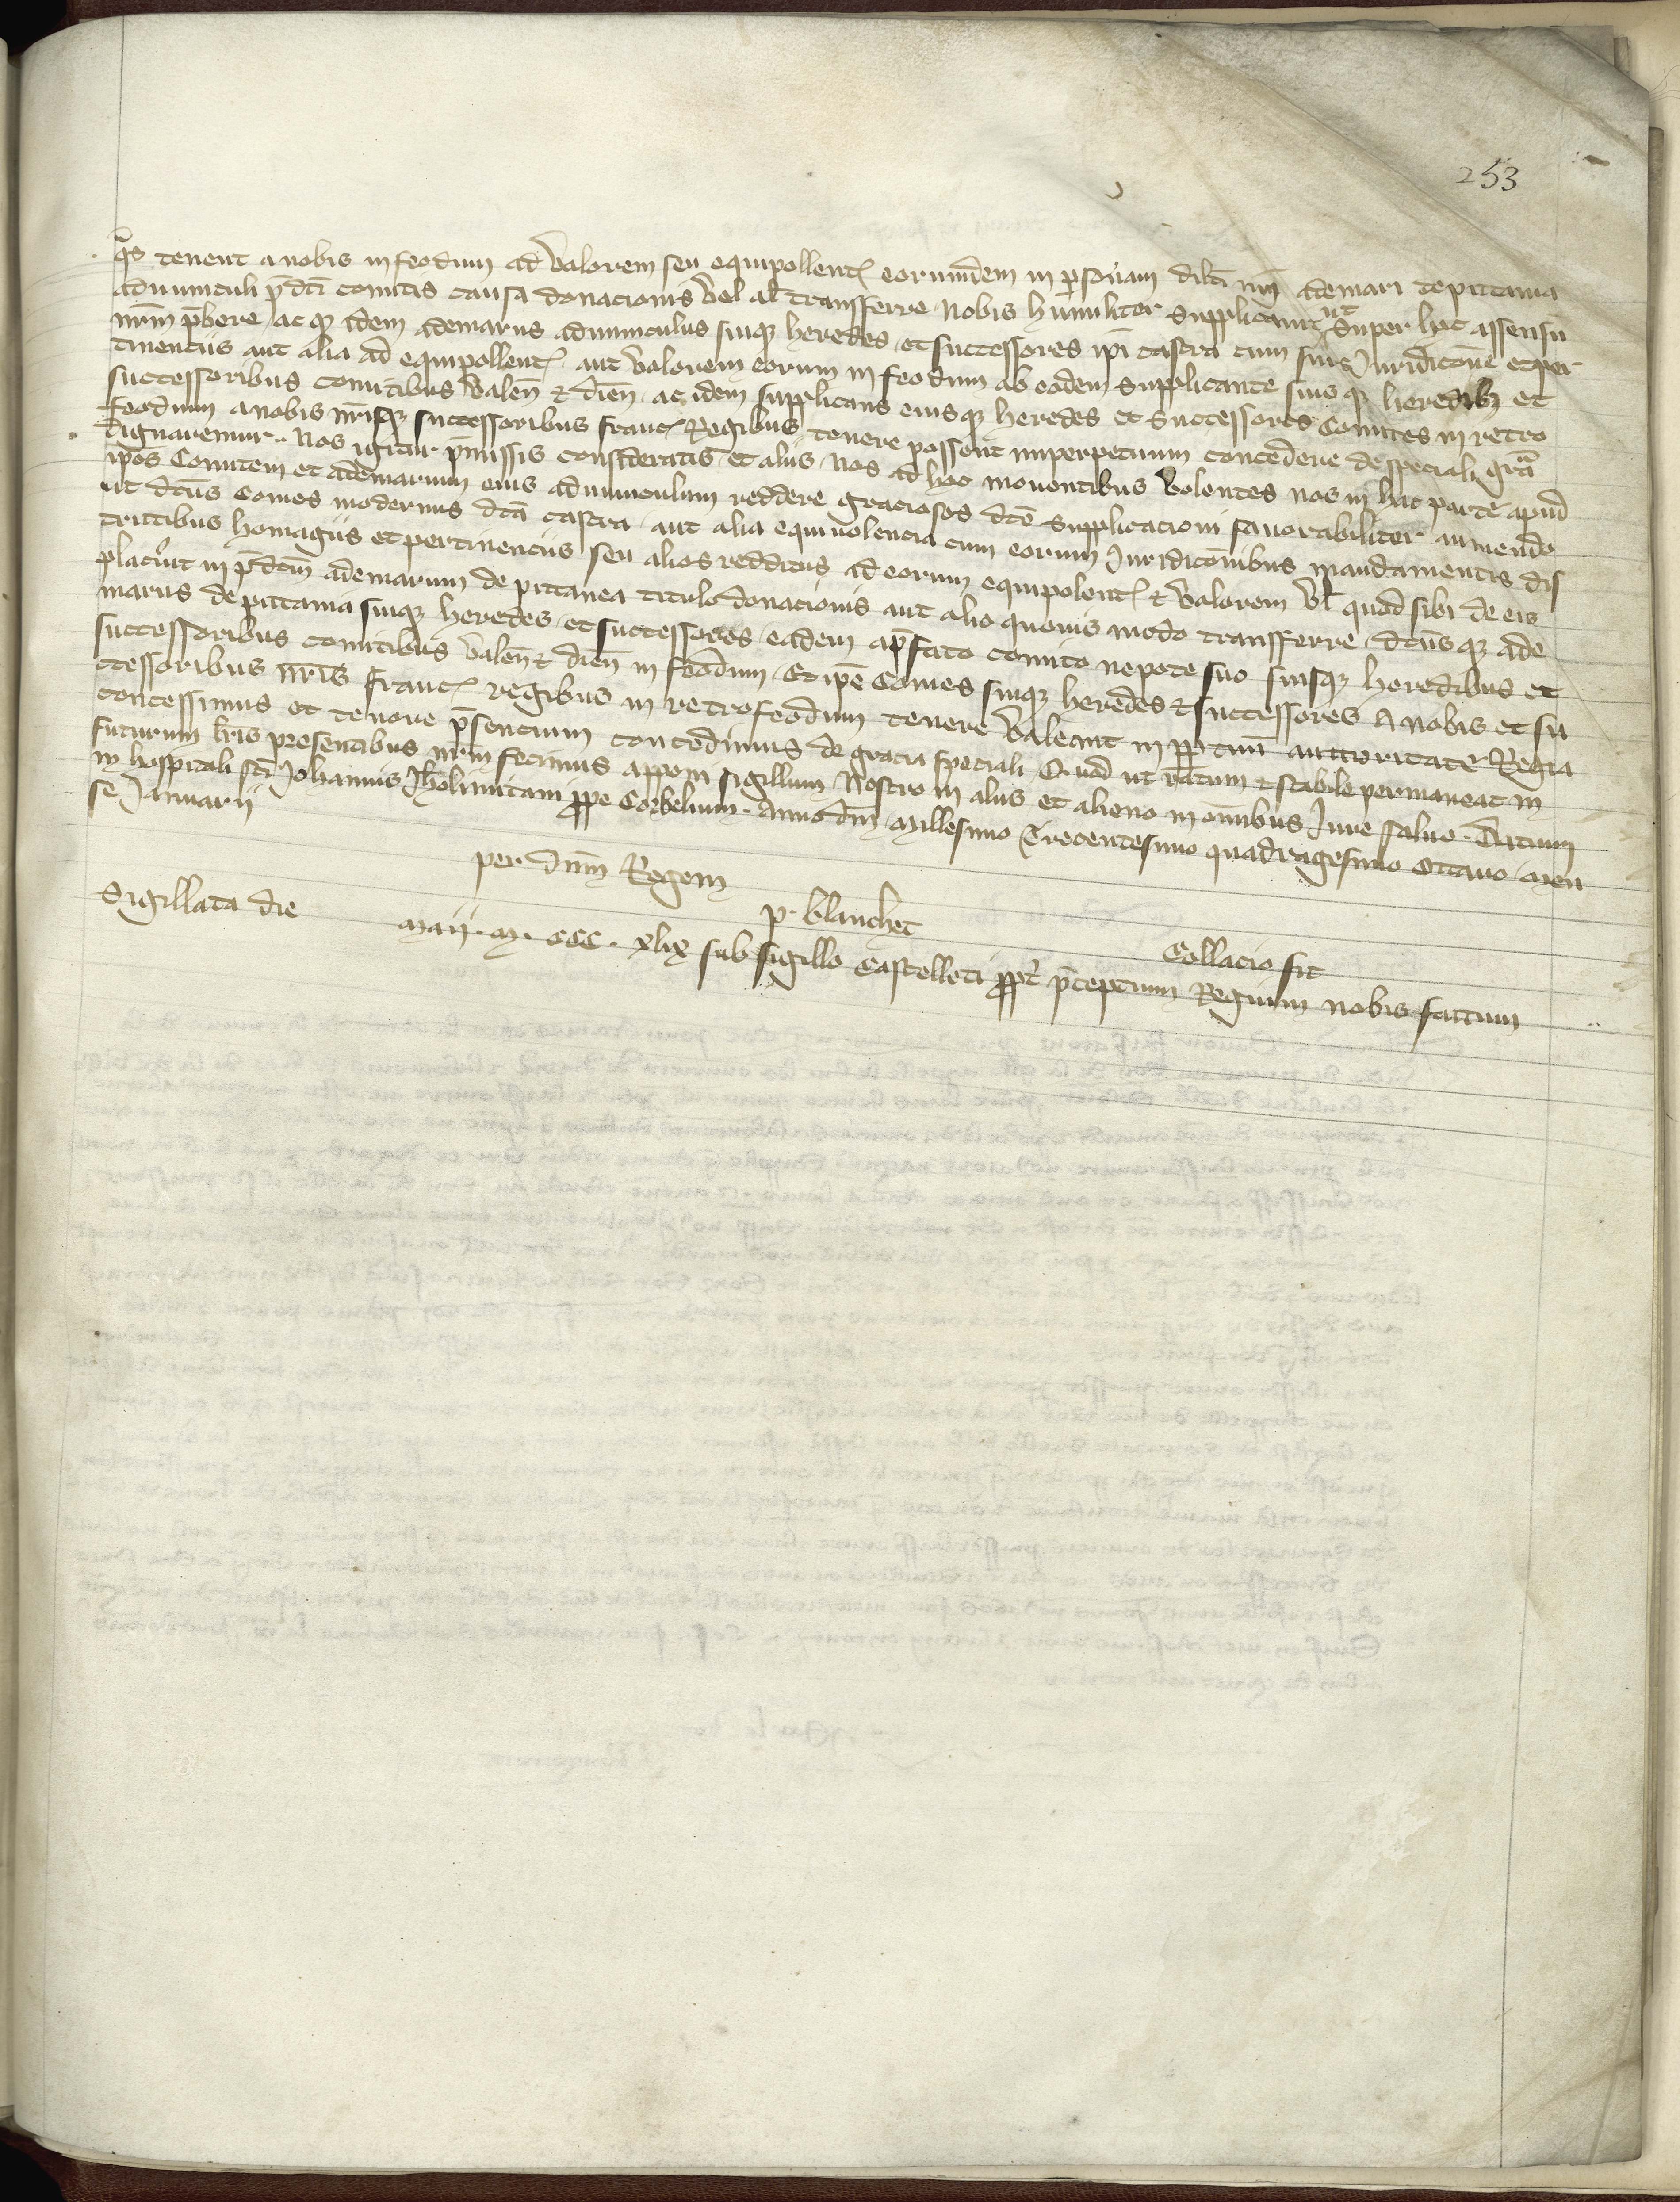 253
q̃s tenent a nobis in feodum ad valorem seu equipollent eorumdem in personam dilc̃i nr̃i Ademari de pictavia
advunculi p̃dc̃i comitis causa donacionis vel al̃ transferre nobis humiliter supplicavit ut super hoc assensũ
nr̃m p̃bere ac q̃ idem Ademarus advunculus suiq̃ heredes et successores ip̃i castra cum suis Juridicõne et per
tinenciis aut alia ad equipollent aut valorem eorum in feodum ab eodem supplicante suisq̃ heredib et
successoribus comitibus valeñ & dieñ ac idem supplicans eiusq̃ heredes et successores Comites in retro
feodum a nobis nr̃isq̃ successoribus franc Regibus tenere possent imperpetuum concedere de speciali gr̃a
dignaremur. Nos igitur p̃missis consideratis et aliis nos ad hoc moventibus volentes nos in hac parte apud
ip̃os Comitem et Ademarum eius advunculum reddere graciosos dc̃e supplicacioni favorabiliter annuendo
ut dc̃us Comes modernus dc̃a castra aut alia equivolencia cum eorum Juridicõnibus mandamentis dis
trictibus homagiis et pertinenciis seu alios redditus ad eorum equipolent & valorem vl̃ quod sibi de eis
placũit in p̃dc̃m Ademarum de pictavea titulo donacionis aut alio quovis modo transferre dc̃usq̃ Ade
marus de pictavia suiq̃ heredes et successores eadem a p̃fato comite nepote suo suisq̃ heredibus et
successoribus comitibus valeñ & dieñ in feodum Et ip̃e Comes suiq̃ heredes & successores A nobis et su
ccessoribus nr̃is franc regibus in retrofeodum tenere valeant in ꝑpetuũ auctoritate Regia
concessimus et tenore p̃sencium concedimus de gracia speciali Quod ut ratum & stabile permaneat in
futurum lr̃is presentibus nr̃m fecimus apponi sigillum Nostro in aliis et alieno in om̃ibus Jure salvo. Datum
in hospitali sc̃i Johannis Jhr̃olimitani ꝓpe Corbelium. Anno dñi Millesimo Trecentesimo quadragesimo octavo men
se Januarii
per dñm Regem
p. blanchet
Collacio fit
Sigillata die Maii. M. CCC. xlix sub sigillo Castelleti ꝓpt̃ p̃ceptum Regium nobis factum